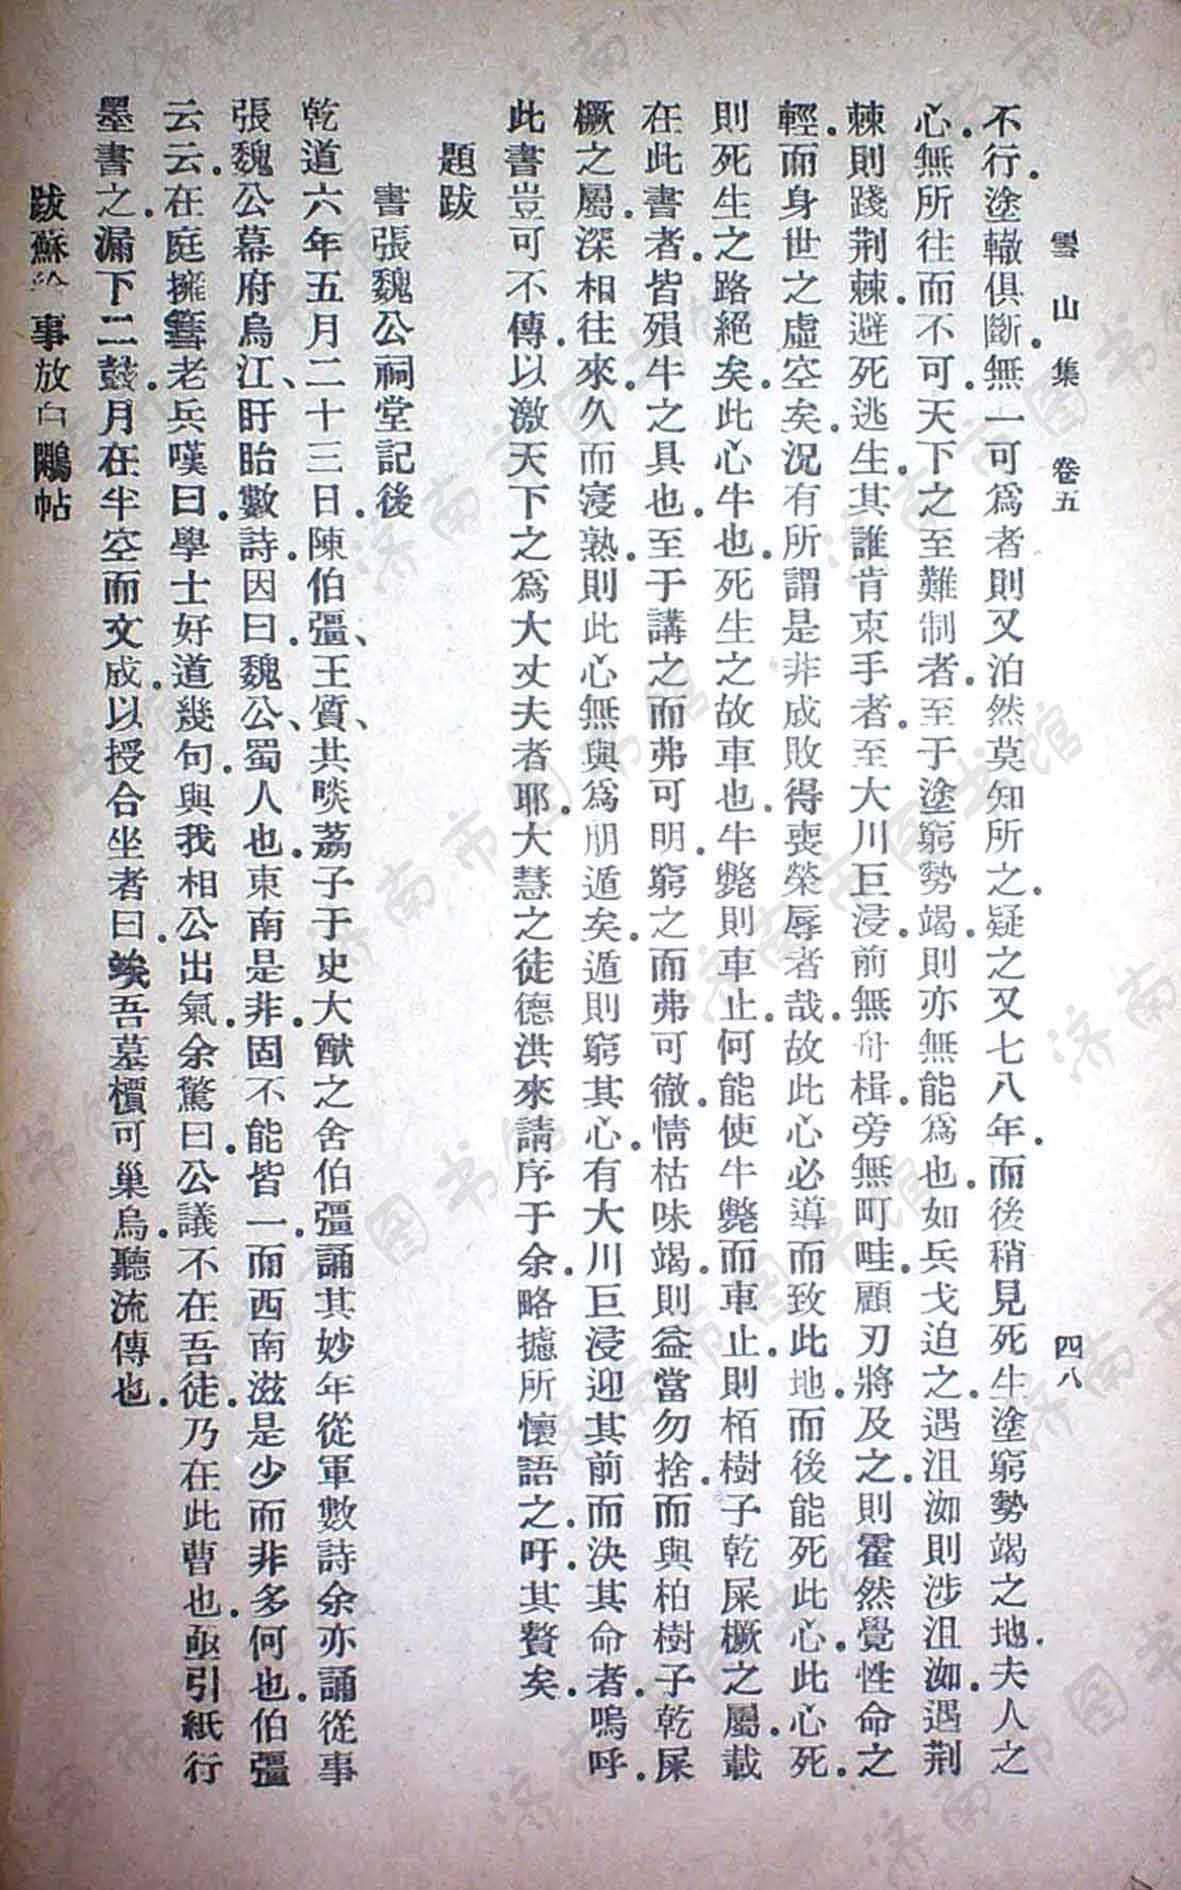 雪山集　卷五　四八
不行。塗轍俱斷。無一可爲者則又泊然莫知所之。疑之又七八年。而後稍見死生塗窮勢竭之地。夫人之
心。無所往而不可。天下之至難制者。至于塗窮勢竭。則亦無能爲也。如兵戈迫之。遇沮洳則涉沮洳。遇荆
棘則踐荆棘。避死逃生。其誰肯束手者。至大川巨浸。前無舟楫。旁無町畦。顧刃將及之。則霍然覺性命之
輕。而身世之虛空矣。況有所謂是非成敗得喪榮辱者哉。故此心必導而致此地。而後能死此心。此心死。
則死生之路絕矣。此心牛也。死生之故車也。牛斃則車止。何能使牛斃而車止。則栢樹子乾屎橛之屬。載
在此書者。皆殞牛之具也。至于講之而弗可明。窮之而弗可徹。情枯味竭。則益當勿捨。而與柏樹子乾屎
橛之屬。深相往來。久而寖熟。則此心無與爲朋遁矣。遁則窮其心。有大川巨浸迎其前。而決其命者。嗚呼。
此書豈可不傳。以激天下之爲大丈夫者耶。大慧之徒德洪來請序于余。略攄所懷語之。吁。其贅矣。
題跋
書張魏公祠堂記後
乾道六年五月二十三日。陳伯彊、王質、共啖荔子于史大猷之舍。伯彊誦其妙年從軍數詩。余亦誦從事
張魏公幕府烏江、盱眙數詩。因曰。魏公、蜀人也。東南是非。固不能皆一。而西南滋是少而非多。何也。伯彊
云云。在庭擁篲老兵嘆曰。學士好道幾句。與我相公出氣。余驚曰。公議不在吾徒。乃在此曹也。亟引紙行
墨書之。漏下二鼓。月在半空而文成。以授合坐者曰。俟吾墓檟可巢烏。聽流傳也。
跋蘇給事放白鷴帖